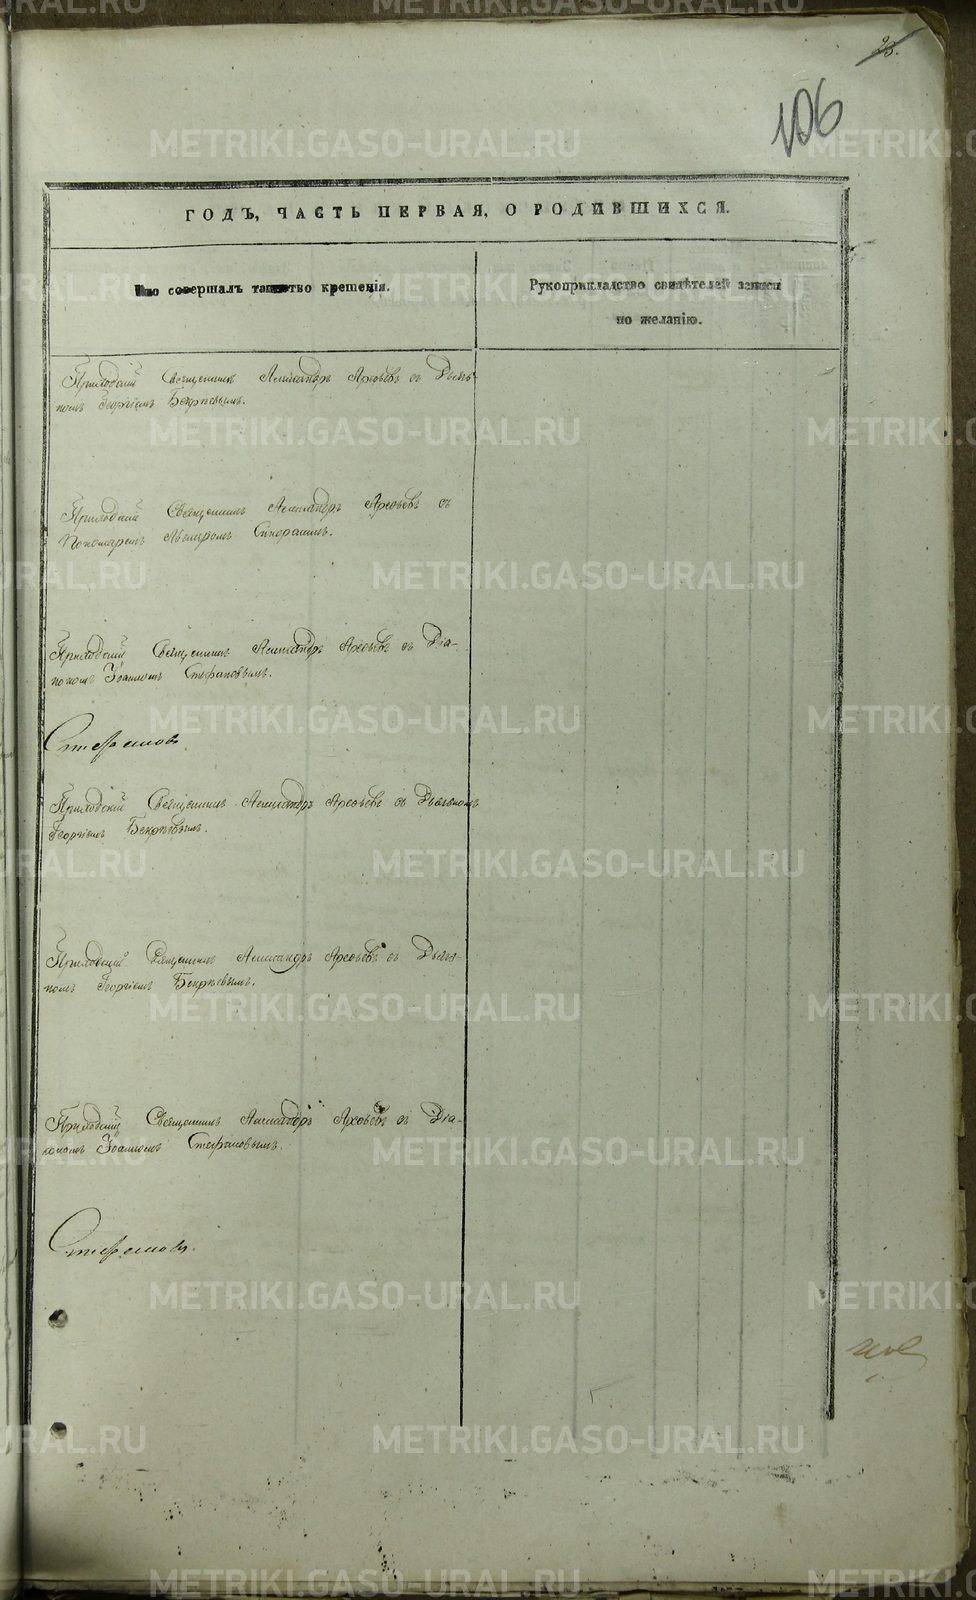 23.
106
ГОДЪ, ЧАСТЬ ПЕРВАЯ, О РОДИВШИХСЯ.
Кто совершалъ таинство крещенія.
Рукоприкладство свидѣтелей записи
по желанію.
Приходскій Священникъ Александръ Арефьевъ съ Дьяч-
комъ Георгіемъ
Приходскій Священникъ Александръ Арефьевъ съ
Пономаремъ
Приходскій Священникъ Александръ Арефьевъ съ Діа-
кономъ Іоанномъ Стефановымъ.
Стефановъ
Приходскій Священникъ Александръ Арефьевъ съ Дьячкомъ
Георгіемъ
Приходскій Священникъ Александръ Арефьевъ съ Дьяч-
комъ Георгіемъ
Приходскій Священникъ Александръ Арефьевъ съ Діа-
кономъ Іоанномъ Стефановымъ.
Стефановъ.
METRIKI.GASO-URAL.RU